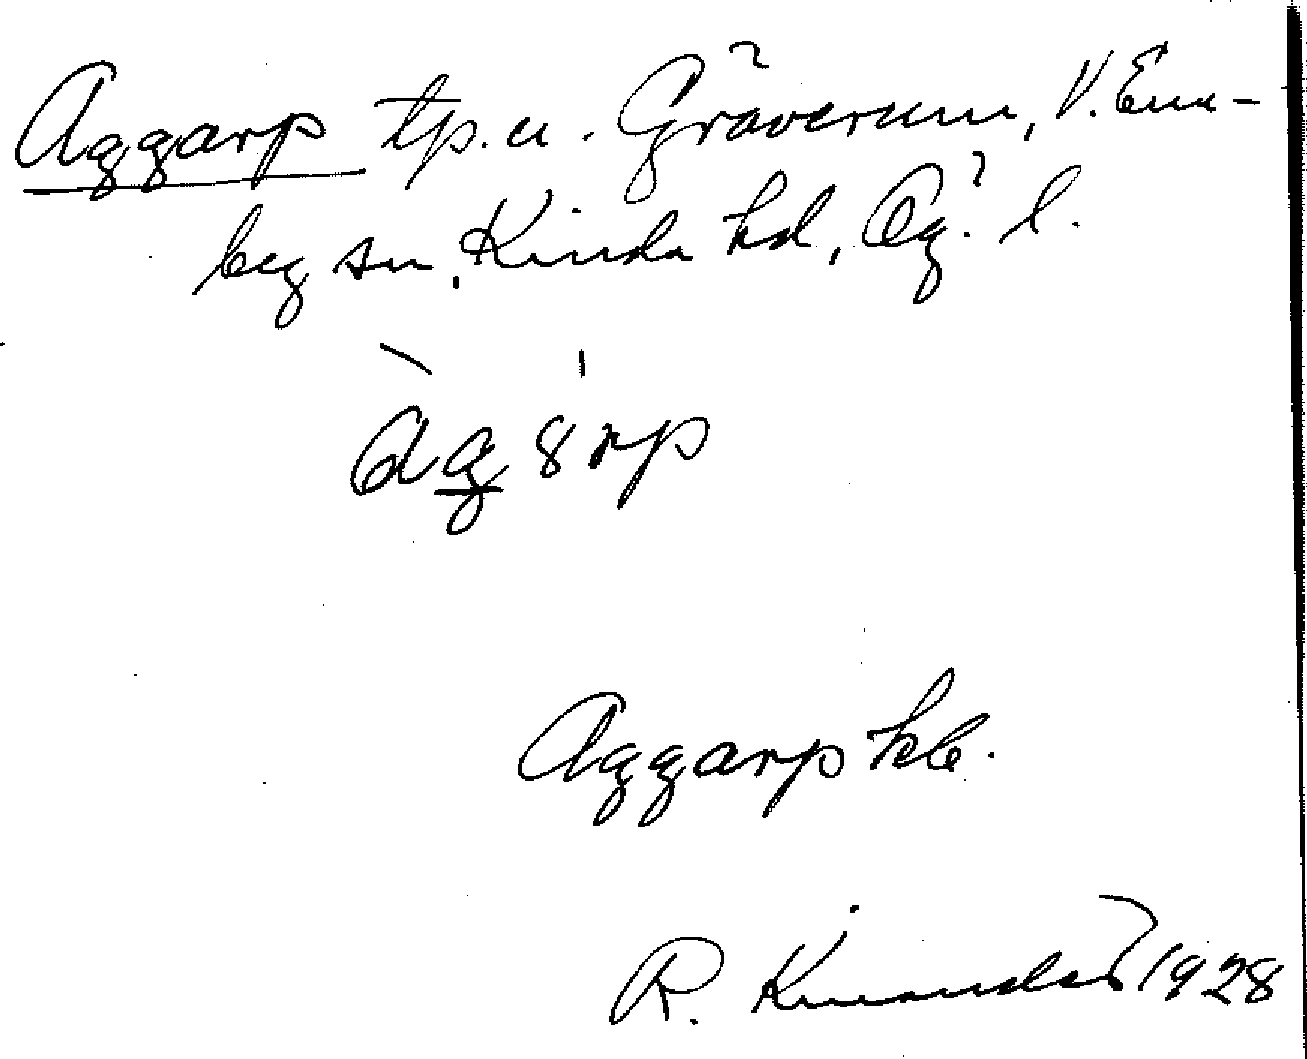 Aggarp tp. u. Gräverum, V. Ene-
by sn, Kinda hd, Ög. l.
àg8rp
Aggarp kb.
R. Kinander 1928